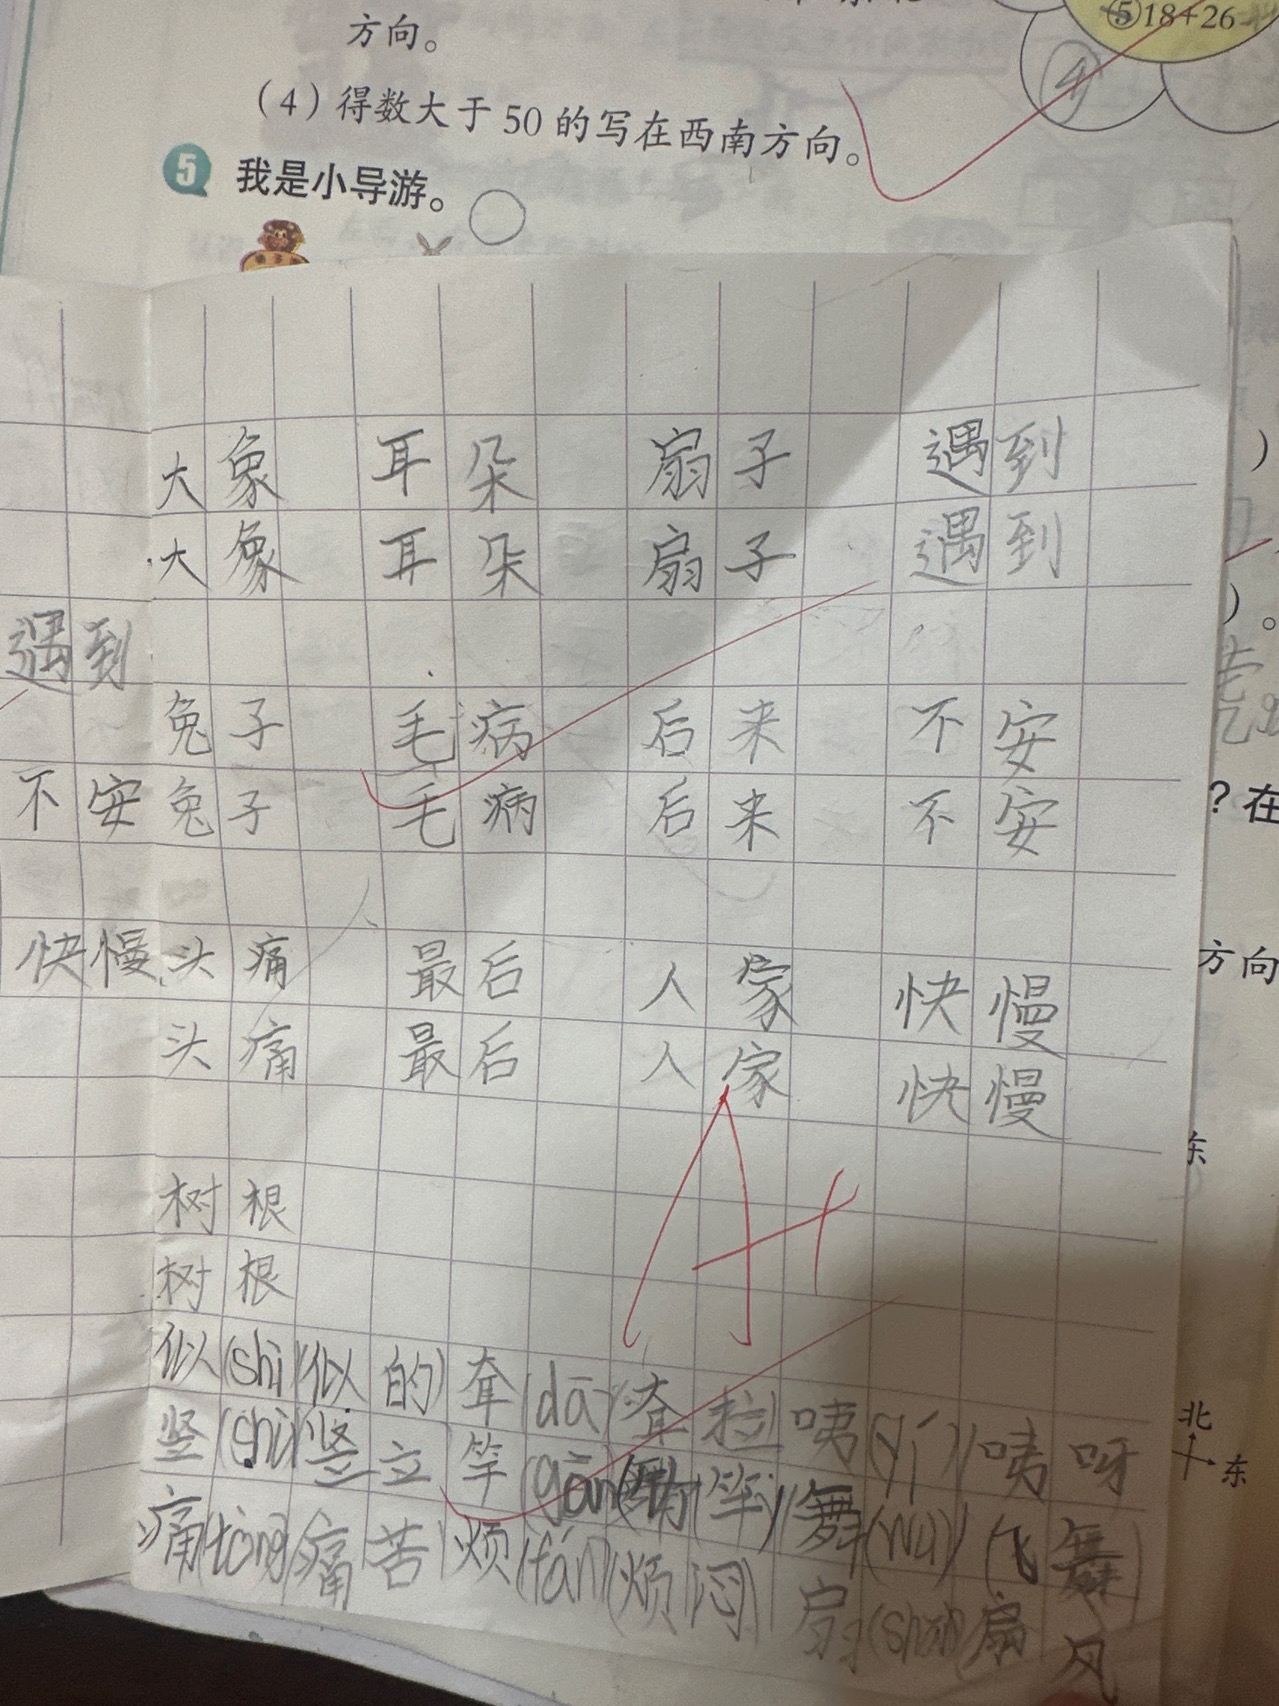 方向。
⑤18+26
④
(4)得数大于50的写在西南方向。
5 我是小导游。
大象 耳朵 扇子 遇到
大象 耳朵 扇子 遇到
遇到
兔子 毛病 后来 不安
不安 兔子 毛病 后来 不安
快慢 头痛 最后 人家 快慢
头痛 最后 人家 快慢
树根
树根
A+
似(shì)(似的) 耷(dā)(耷拉) 咦(yí)(咦呀
竖(shù)竖立 竿(gān)(竿) 舞(wǔ)(飞舞)
痛(tòng)(痛苦) 烦(fán)(烦闷) 扇(shān)扇风
?在
方向
东
北
东